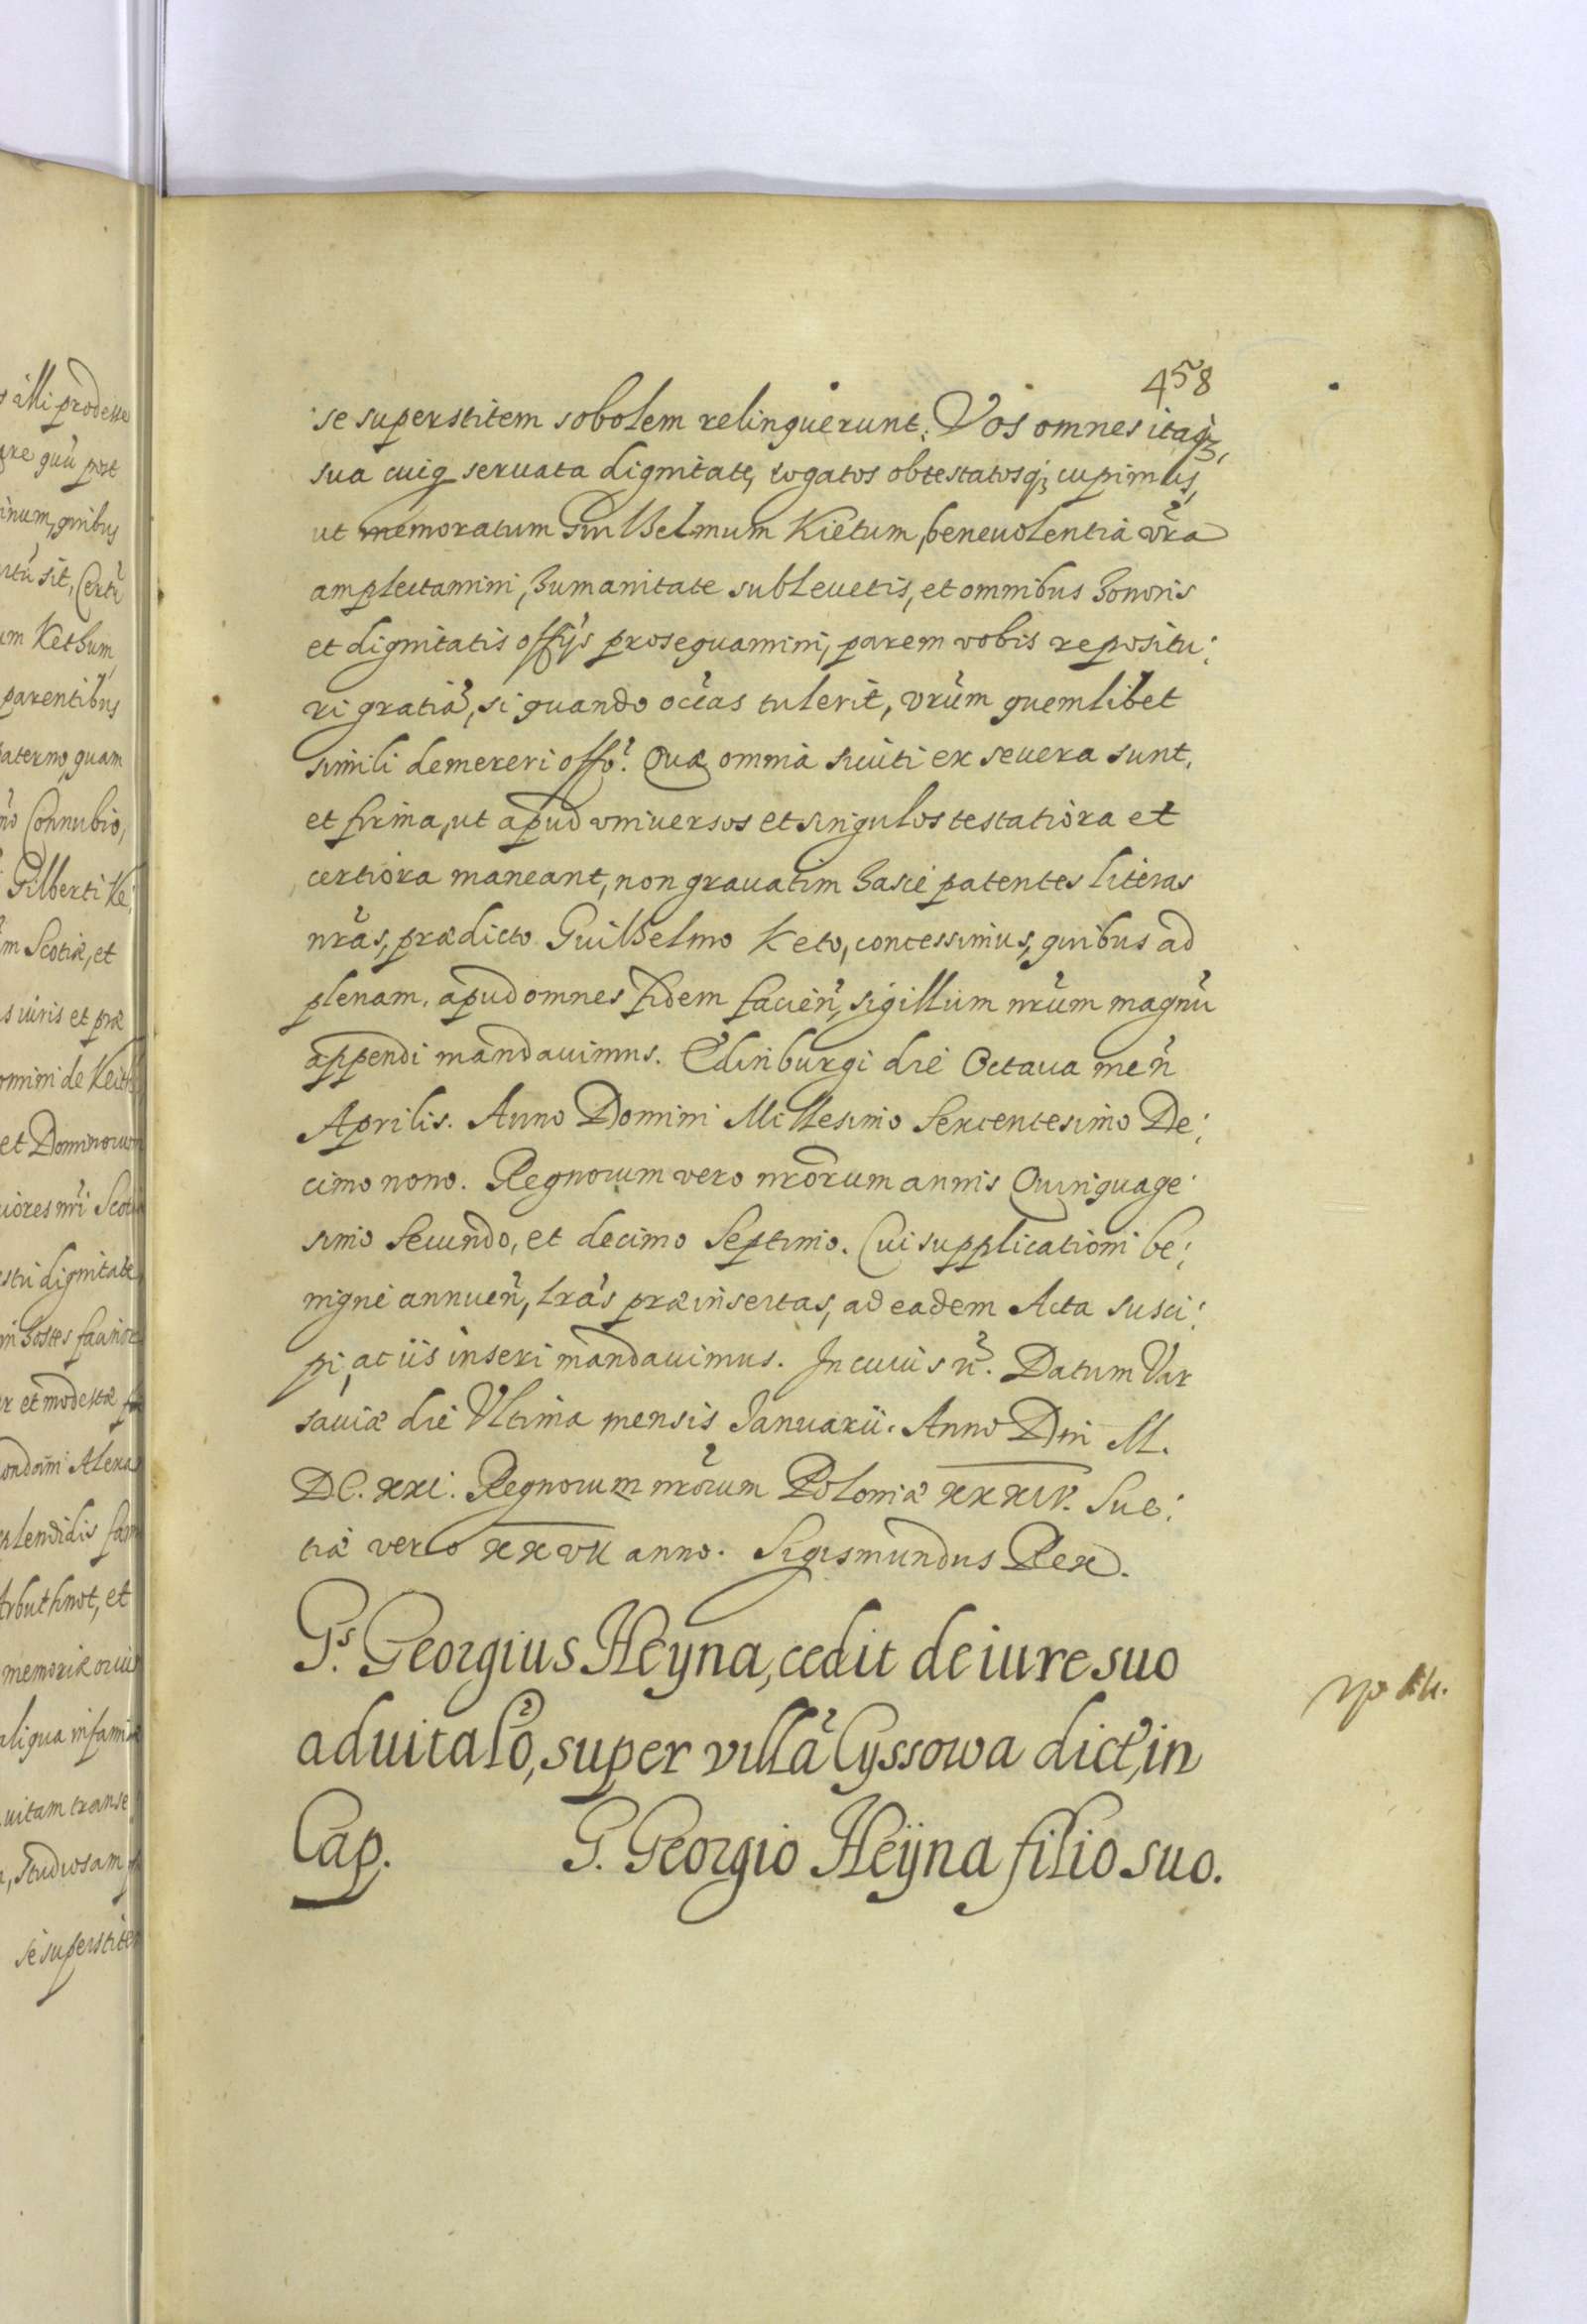 458
se superstitem sobolem relinquerunt. Vos omnes itaq3,
sua cuiq servata dignitate, rogatos obtestatosq3 cupimus,
ut memoratum Guilhelmum Kietum, benevolentia vra
amplectamini, humanitate sublevetis, et omnibus honoris
et dignitatis offijs prosequamini, parem vobis repositu:
ri gratia, si quando occas tulerit, vrum quemlibet
simili demereri offo. Quæ omnia sicuti ex se vera sunt,
et firma, ut apud universos et singulos testatiora et
certiora maneant, non gravatim hasce patentes literas
nras, prædicto Guilhelmo Keto, concessimus, quibus ad
plenam, apud omnes fidem facien, sigillum nrum magnu
appendi mandavimus. Edinburgi die Octava men
Aprilis. Anno Domini Millesimo Sexcentesimo De:
cimo nono. Regnorum vero nrorum annis Quinquage
simo Secundo, et decimo Septimo. Cui supplicationi be:
nigne annuen, Lras præinsertas, ad eadem Acta susci:
pi, ac iis inseri mandavimus. In cuius r. Datum Var
saviæ die Ultima mensis Januarii. Anno Dni M.
DC. xxi. Regnorum nrorum Poloniæ xxxiv. Sue:
tiæ vero xxvii anno. Sigismundus Rex.
Gs. Georgius Heyna, cedit de iure suo
aduitalo, super villa Cyssowa dict, in
Cap. G. Georgio Heÿna filio suo.
illi prodesse
quu post
quibus
sit, Certu
Kethum
parentibus
paterno, quam
Connubio,
Gilberti Ke:
Scotiæ, et
viris et præ
de Keith
et Dominorum
nri
dignitate
hostes
et modestæ
Alexa
splendidis
Arbuthnot, et
memoriæ
infamiæ
vitam transe
studiosam
se superstitem